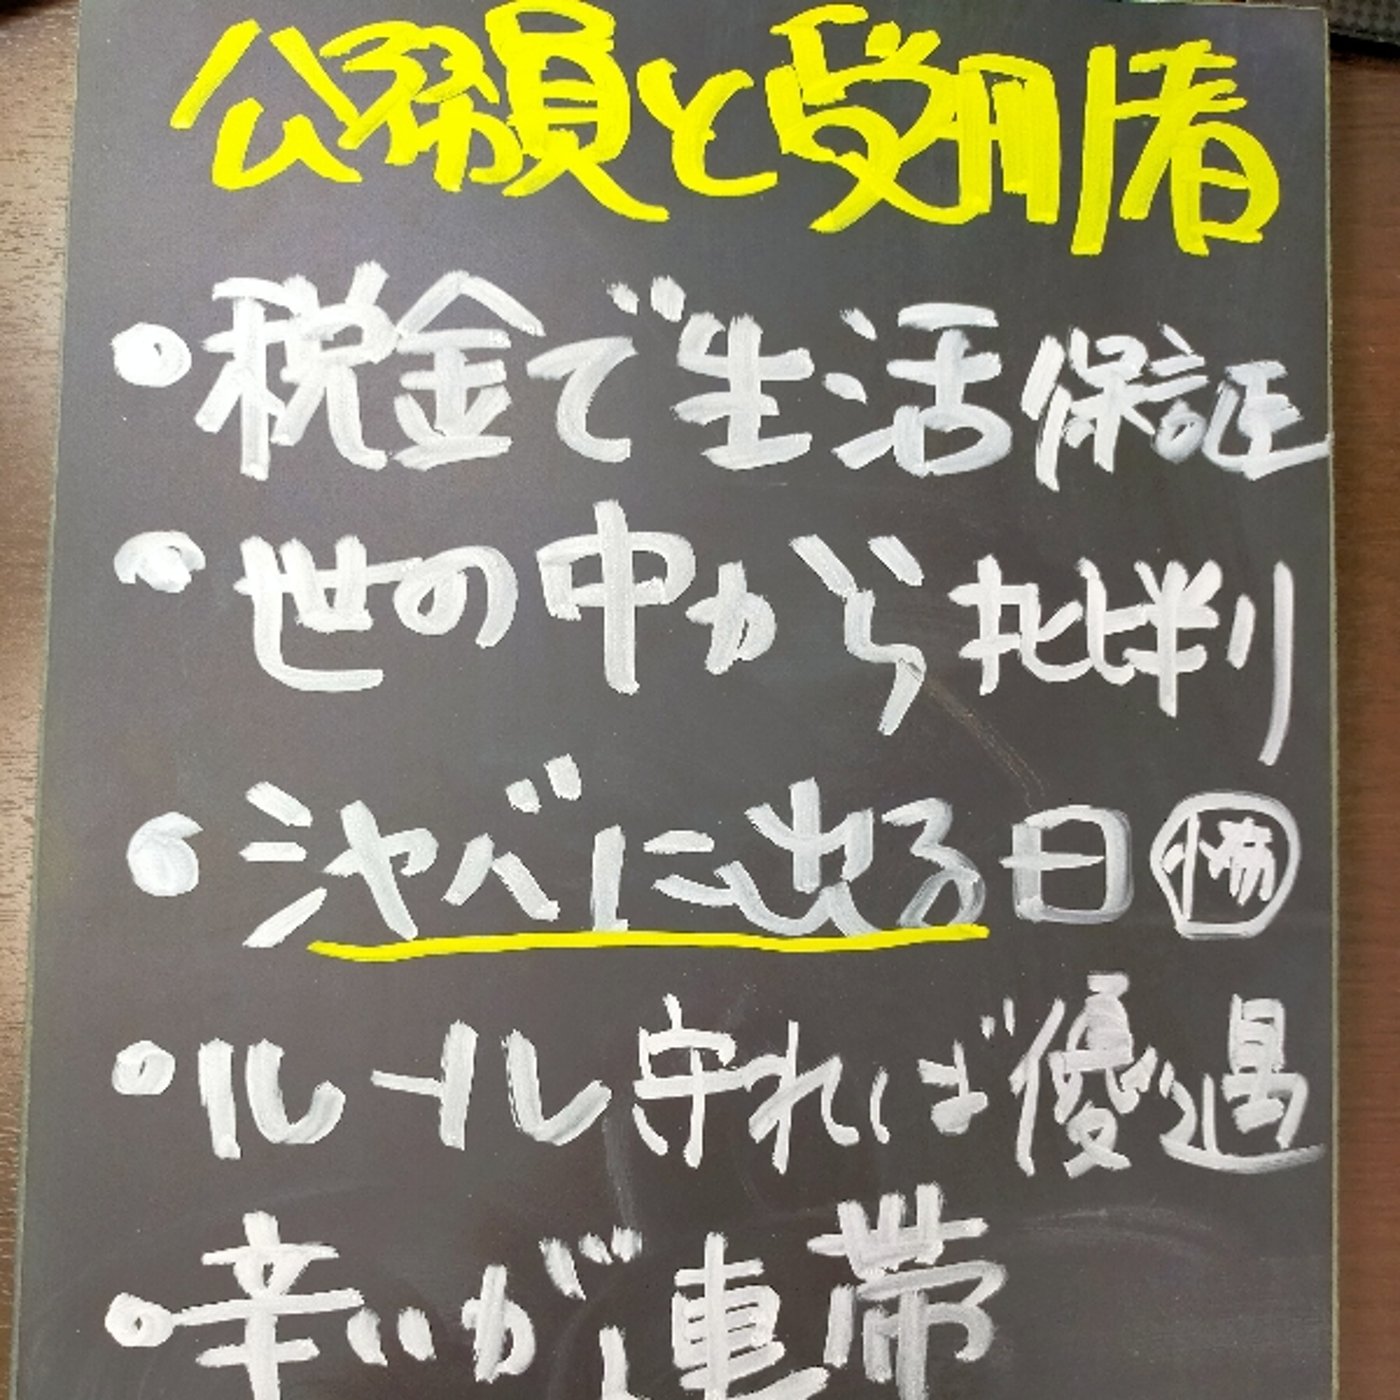 公務員と受刑者
・税金で生活保証
・世の中から批判
・シャバに出る日 怖
・ルール守れば優遇
・辛いが連帯